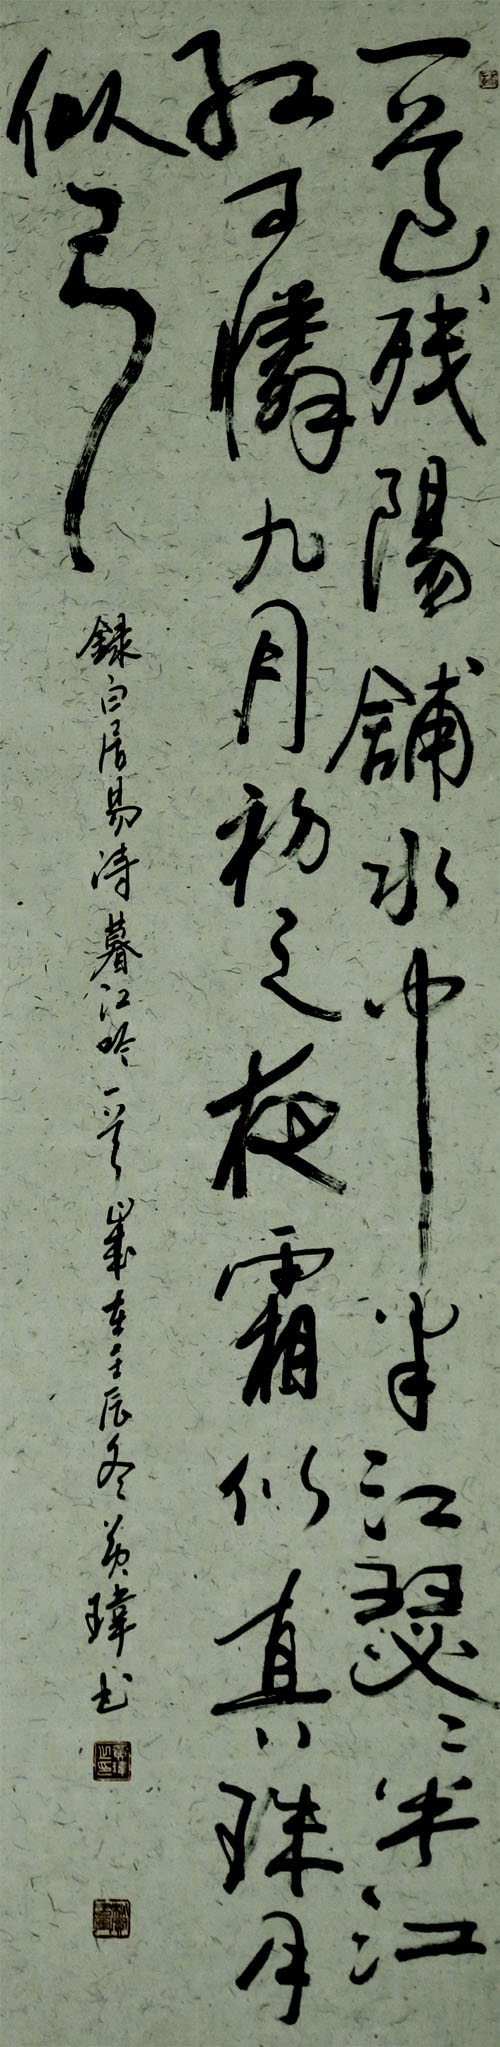 一道残陽舖水中半江瑟〻半江
紅可憐九月初三夜霜似真珠月
似弓
録白居易诗暮江吟一首歲在壬辰冬黄瑋书